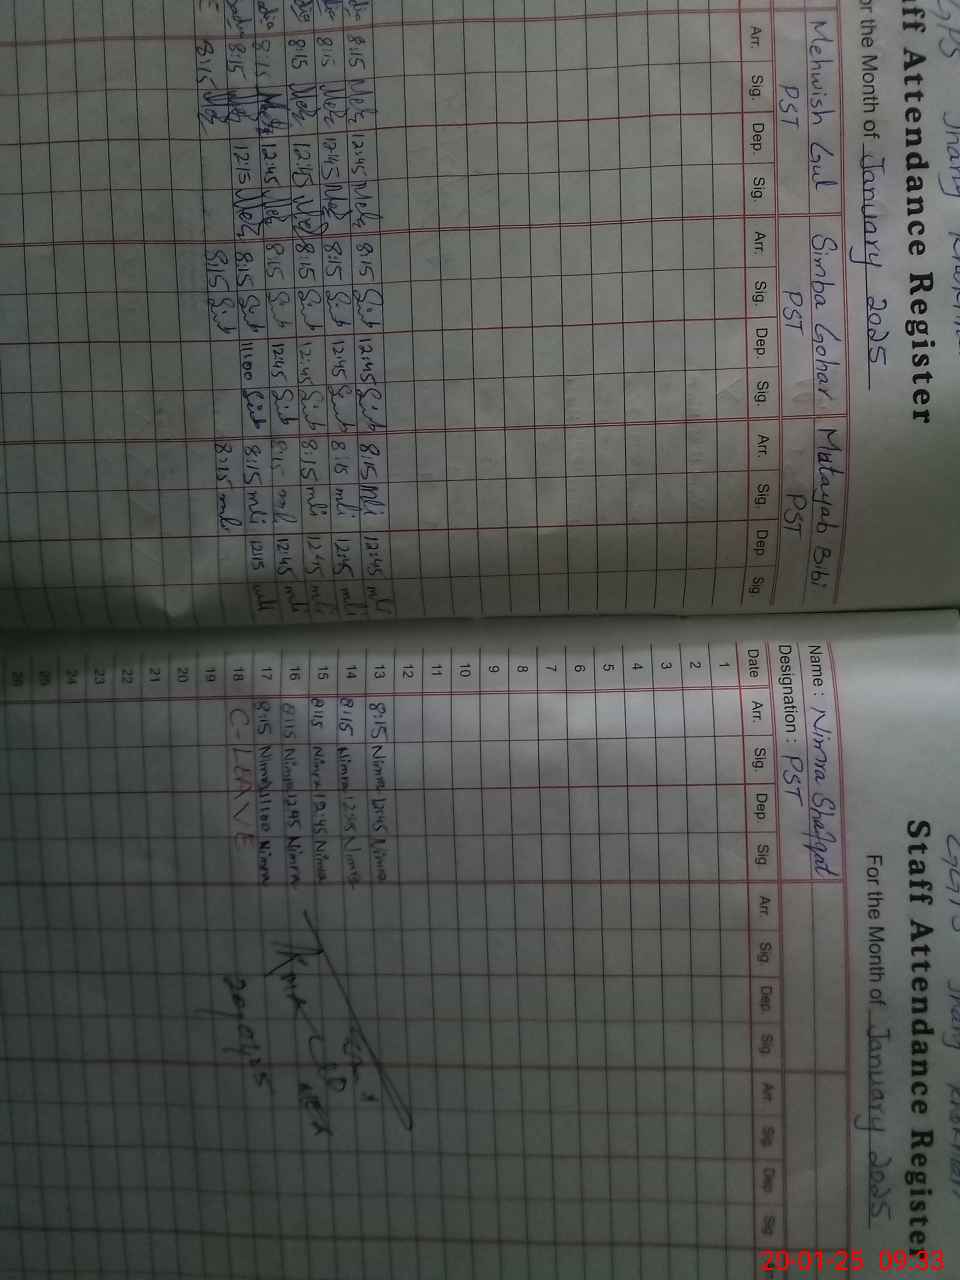 ff Attendance Register
or the Month of January 2025
Mehwish Gul Simba Gohar Matayab Bibi
PST PST PST
Arr. Sig. Dep. Sig. Arr. Sig. Dep. Sig. Arr. Sig. Dep. Sig.
8:15 Meh 12:45 Meh 8:15 Sib 12:45 Sib 8:15 mli 12:45 mli
8:15 Meh 12:45 Meh 8:15 Sib 12:45 Sib 8:15 mli 12:45 mli
8:15 Meh 12:45 Meh 8:15 Sib 12:45 Sib 8:15 mli 12:45 mli
8:15 Meh 12:45 Meh 8:15 Sib 12:45 Sib 8:15 mli 12:45 mli
8:15 Meh 12:15 Meh 8:15 Sib 11:00 Sib 8:15 mli 12:15 mli
8:15 Meh 8:15 Sib 8:15 mli
Staff Attendance Register
For the Month of January 2025
Name : Nimra Shafqat
Designation : PST
Date Arr. Sig. Dep. Sig. Arr. Sig. Dep. Sig. Arr. Sig. Dep. Sig.
1
2
3
4
5
6
7
8
9
10
11
12
13 8:15 Nimra 12:45 Nimra
14 8:15 Nimra 12:45 Nimra
15 8:15 Nimra 12:45 Nimra
16 8:15 Nimra 12:45 Nimra
17 8:15 Nimra 11:00 Nimra
18 C-LEAVE
19
20
21
22
23
24
25
26
20-01-25 09:33